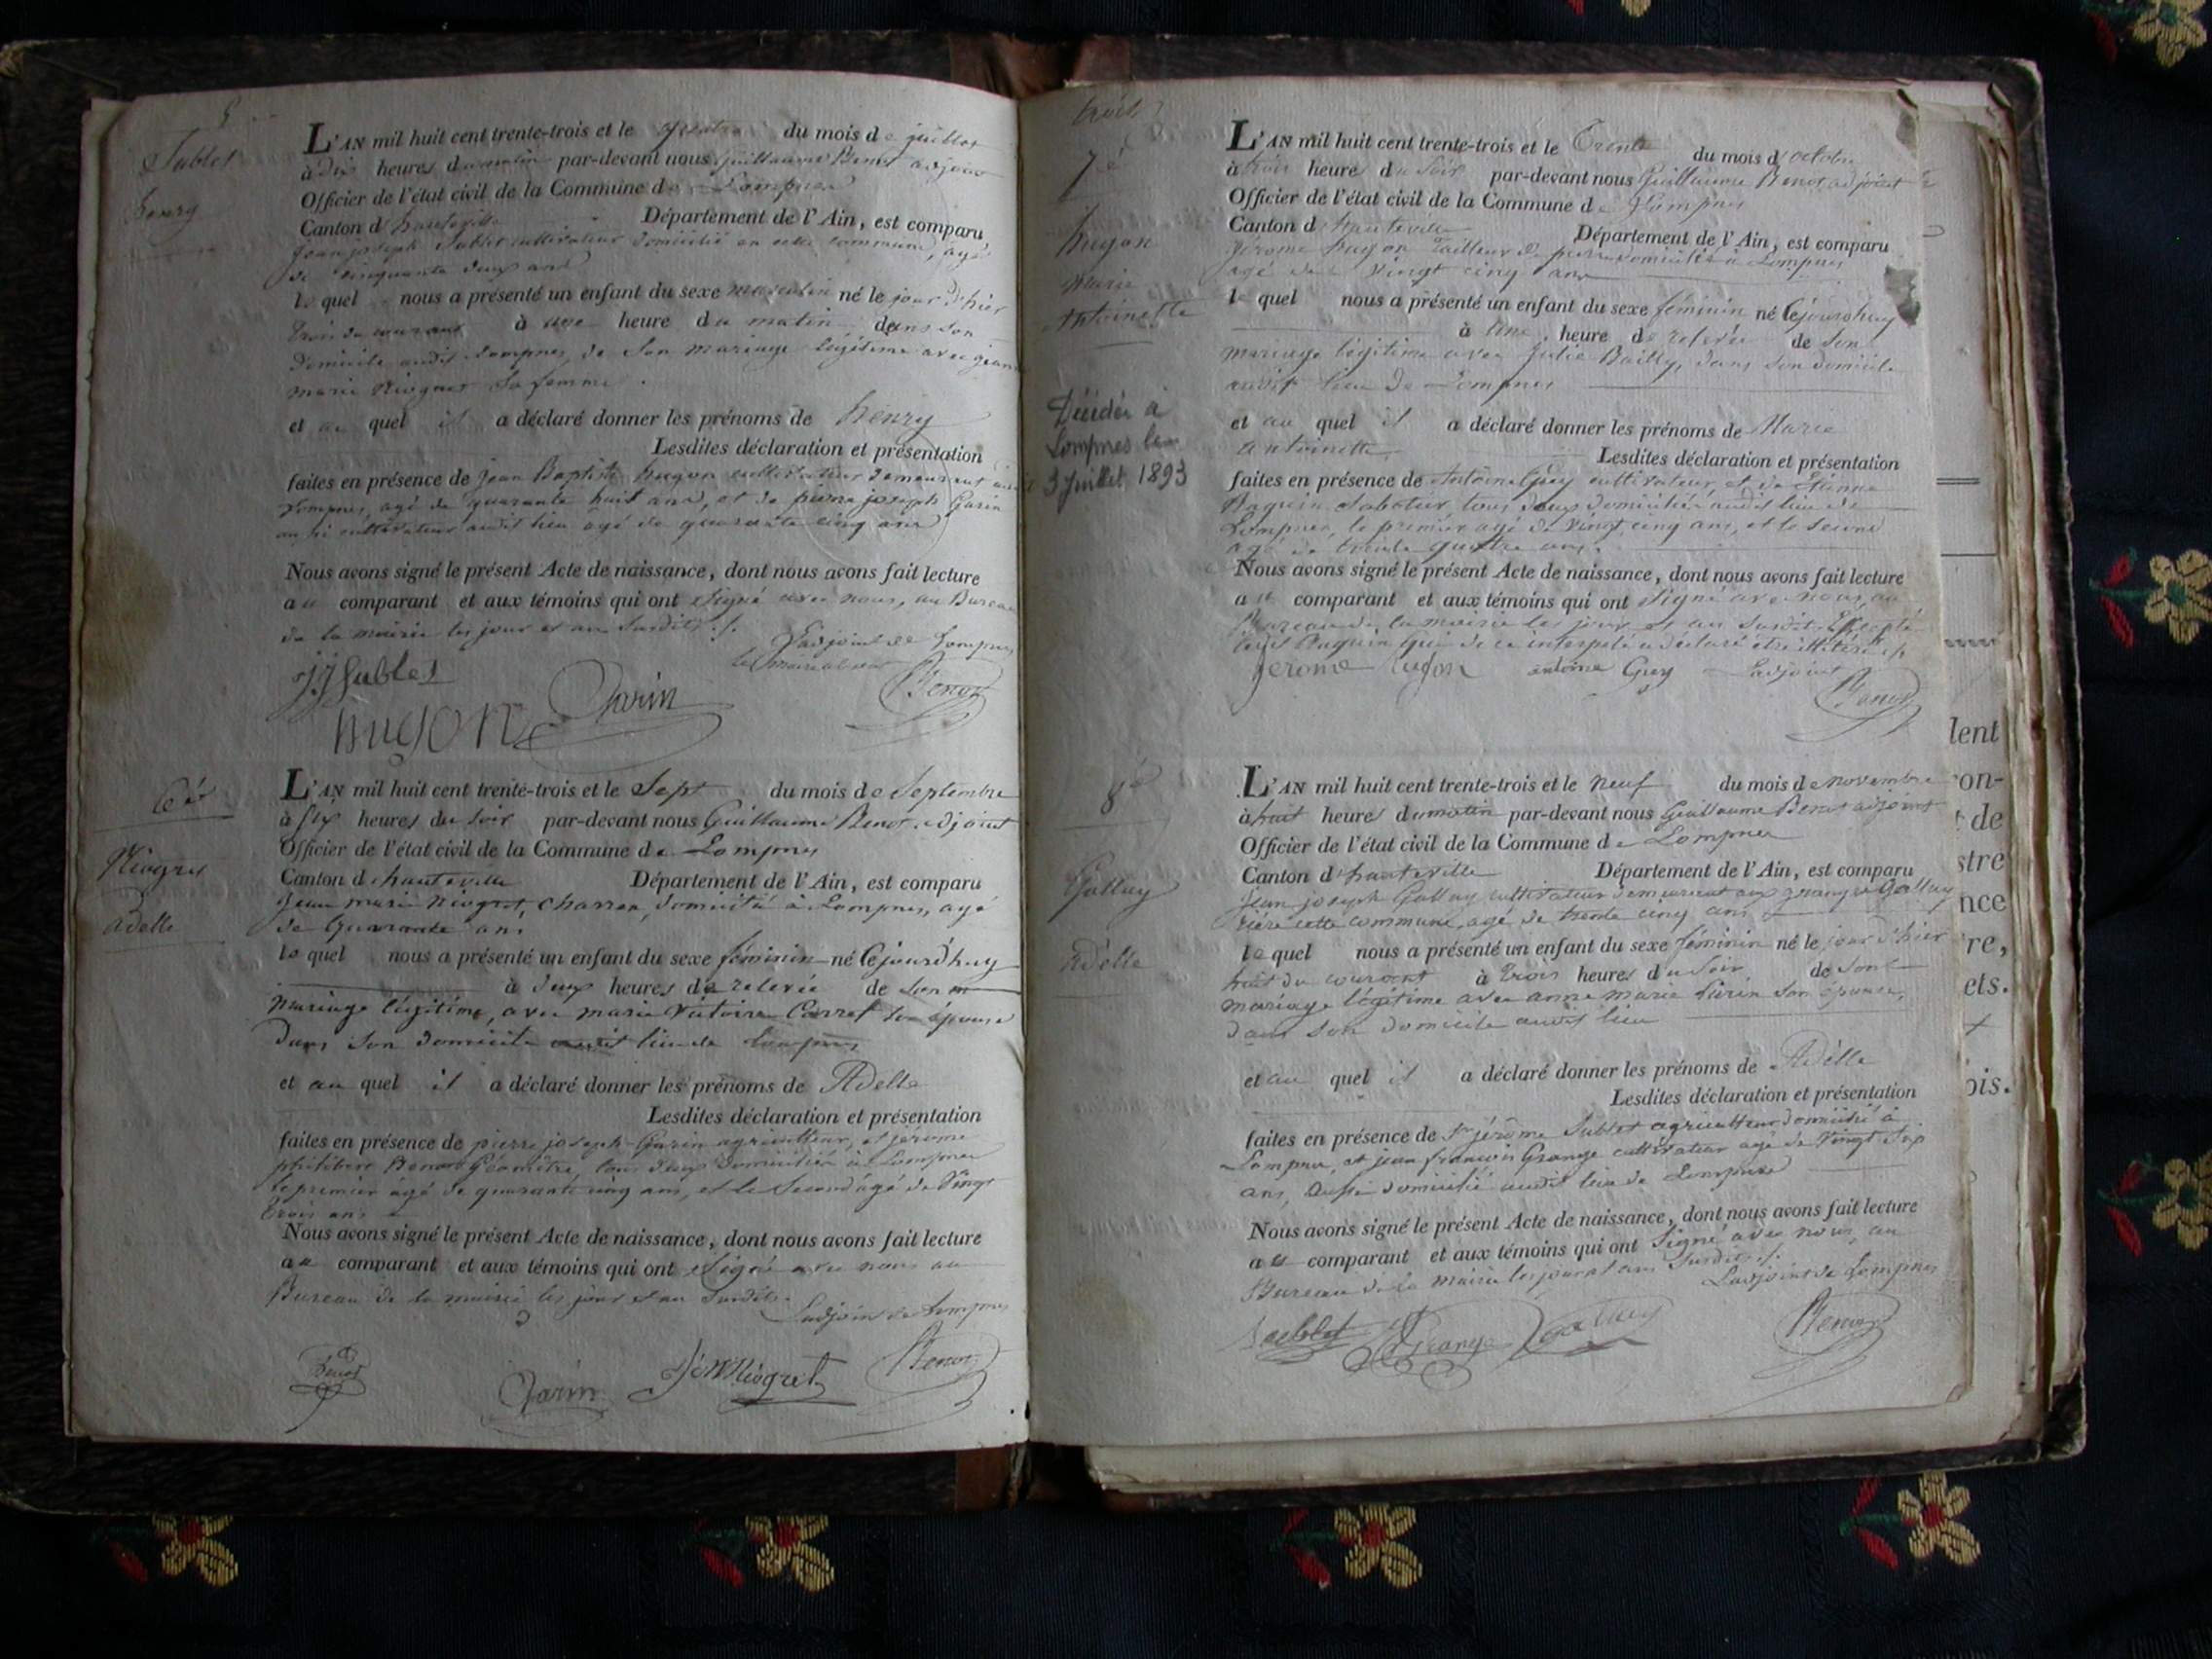 5
Sublet
henry
L'AN mil huit cent trente-trois et le quatre du mois de juillet
à dix heures du matin par-devant nous Guillaume Benot adjoint
Officier de l'état civil de la Commune de Lompnes
Canton d'hauteville Département de l'Ain, est comparu
jean joseph Sublet cultivateur domicilié en cette commune, agé
de cinquante deux ans
le quel nous a présenté un enfant du sexe masculin né le jour d'hier
trois du courant à une heure du matin, dans son
domicile audit Lompnes, de Son mariage légitime avec jeanne
marie Niogret Sa femme.
et au quel il a déclaré donner les prénoms de henry
Lesdites déclaration et présentation
faites en présence de jean Baptiste hugon cultivateur demeurant audit
Lompnes, agé de quarante huit ans, et de pierre joseph Garin
aussi cultivateur audit lieu agé de quarante cinq ans
Nous avons signé le présent Acte de naissance, dont nous avons fait lecture
au comparant et aux témoins qui ont signé avec nous, au Bureau
de la mairie les jour et an Susdits ./.
L'adjoint de Lompnes
le maire absent
JJ Sublet
hugon Garin Benot
6e
Niogret
adelle
L'AN mil huit cent trente-trois et le Sept du mois de Septembre
à six heures du Soir par-devant nous Guillaume Benot adjoint
Officier de l'état civil de la Commune de Lompnes
Canton d'hauteville Département de l'Ain, est comparu
jean marie Niogret, charron, domicilié à Lompnes, agé
de Quarante ans
le quel nous a présenté un enfant du sexe féminin né Cejourd'huy
à deux heures de relevée de Son
mariage légitime, avec marie Victoire Carret son épouse
dans Son domicile audit lieu de Lompnes
et au quel il a déclaré donner les prénoms de Adelle
Lesdites déclaration et présentation
faites en présence de pierre joseph Garin agriculteur, et jérome
philibert Benot Géomètre, tous deux domiciliés à Lompnes
le premier agé de quarante cinq ans, et le Second agé de Vingt
trois ans
Nous avons signé le présent Acte de naissance, dont nous avons fait lecture
au comparant et aux témoins qui ont Signé avec nous au
Bureau de la mairie les jour et an Susdits.
L'adjoint de Lompnes
Benot Garin Niogret Benot
trois
7e
hugon
marie
Antoinette
Décédée à
Lompnes le
3 juillet 1893
L'AN mil huit cent trente-trois et le Trente du mois d'octobre
à trois heures du Soir par-devant nous Guillaume Benot adjoint
Officier de l'état civil de la Commune de Lompnes
Canton d'hauteville Département de l'Ain, est comparu
jérome hugon Tailleur de pierre domicilié à Lompnes
agé de Vingt cinq ans
le quel nous a présenté un enfant du sexe féminin né Cejourd'huy
à Une heure de relevée de Son
mariage légitime avec Julie Bailly, dans Son domicile
audit lieu de Lompnes
et au quel il a déclaré donner les prénoms de Marie
antoinette
Lesdites déclaration et présentation
faites en présence de Antoine Guy cultivateur, et de Etienne
Paquin Sabotier, tous deux domiciliés audit lieu de
Lompnes, le premier agé de Vingt cinq ans, et le second
agé de trente quatre ans.
Nous avons signé le présent Acte de naissance, dont nous avons fait lecture
au comparant et aux témoins qui ont Signé avec Nous, au
Bureau de la mairie les jour et an Susdit. Excepté
ledit Paquin qui de ce interpelé a déclaré être illitéré ./.
jerome hugon antoine Guy L'adjoint
Benot
8e
Galluy
Adelle
L'AN mil huit cent trente-trois et le neuf du mois de novembre
à huit heures du matin par-devant nous Guillaume Benot adjoint
Officier de l'état civil de la Commune de Lompnes
Canton d'hauteville Département de l'Ain, est comparu
jean joseph Galluy cultivateur demeurant aux granges Galluy
rière cette commune, agé de trente cinq ans
le quel nous a présenté un enfant du sexe féminin né le jour d'hier
huit du courant à trois heures du Soir, de Son
mariage légitime avec anne marie Son épouse,
dans Son domicile audit lieu
et au quel il a déclaré donner les prénoms de Adelle
Lesdites déclaration et présentation
faites en présence de Sr jérôme Sublet agriculteur domicilié à
Lompnes, et jean françois Grange cultivateur agé de Vingt Sept
ans, aussi domicilié audit lieu de Lompnes
Nous avons signé le présent Acte de naissance, dont nous avons fait lecture
au comparant et aux témoins qui ont Signé avec nous, au
Bureau de la mairie les jour et an Susdits ./.
L'adjoint de Lompnes
Sublet Grange Galluy Benot
lent
on-
de
stre
nce
re,
ets.
ois.